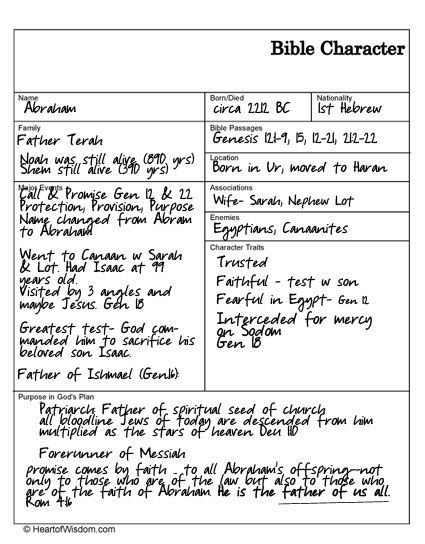 Bible Character
Name
Abraham
Born/Died
circa 2212 BC
Nationality
1st Hebrew
Family
Father Terah
Noah was still alive (890 yrs)
Shem still alive (390 yrs)
Bible Passages
Genesis 12:1-9, 15, 12-21, 21:2-22
Location
Born in Ur, moved to Haran
Major Events
Call & Promise Gen 12 & 22
Protection, Provision, Purpose
Name changed from Abram
to Abraham
Went to Canaan w Sarah
& Lot. Had Isaac at 99
years old.
Visited by 3 angles and
maybe Jesus. Gen 18
Greatest test- God com-
manded him to sacrifice his
beloved son Isaac.
Father of Ishmael (Gen16)
Associations
Wife- Sarah, Nephew Lot
Enemies
Egyptians, Canaanites
Character Traits
Trusted
Faithful - test w son
Fearful in Egypt- Gen 12
Interceded for mercy
on Sodom
Gen 18
Purpose in God's Plan
Patriarch Father of spiritual seed of church
all bloodline Jews of today are descended from him
multiplied as the stars of heaven Deu 1:10
Forerunner of Messiah
promise comes by faith ... to all Abraham's offspring--not
only to those who are of the law but also to those who
are of the faith of Abraham. He is the father of us all.
Rom 4:16
© HeartofWisdom.com